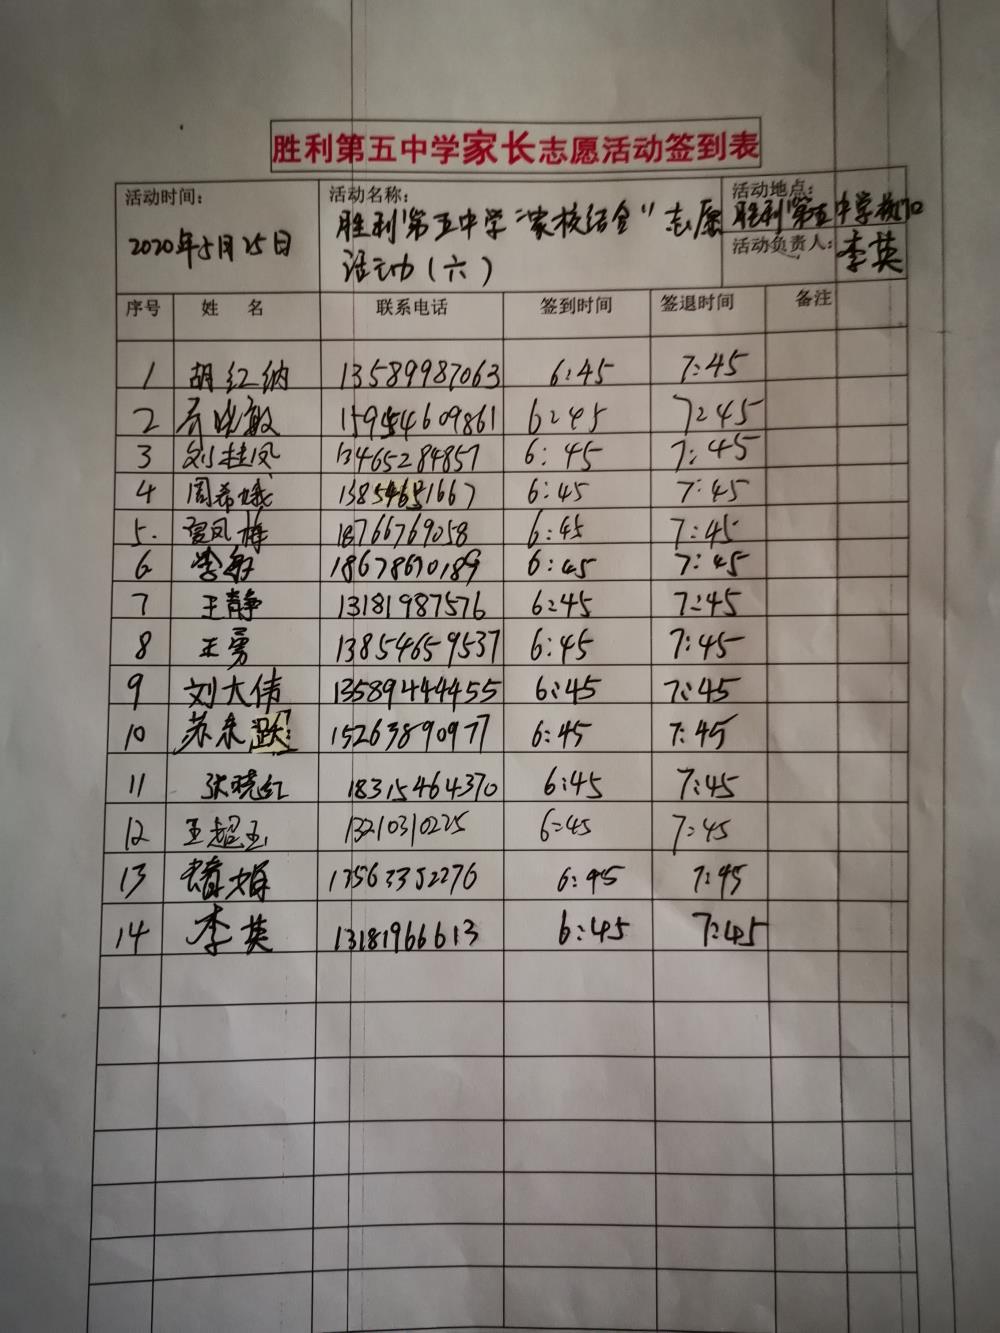 胜利第五中学家长志愿活动签到表
活动时间: 活动名称: 活动地点:
2020年5月25日 胜利第五中学“家校结合”志愿 胜利第五中学校门口
活动(六) 活动负责人: 李英
序号 姓 名 联系电话 签到时间 签退时间 备注
1 胡红纳 13589987063 6:45 7:45
2 晓敏 15954609861 6:45 7:45
3 刘桂凤 13465284857 6:45 7:45
4 周希娥 13854651667 6:45 7:45
5. 贾凤梅 18766769058 6:45 7:45
6 李敏 18678690189 6:45 7:45
7 王静 13181987576 6:45 7:45
8 王勇 13854659537 6:45 7:45
9 刘大伟 13589444455 6:45 7:45
10 苏来跃 15263890977 6:45 7:45
11 张晓红 18315464370 6:45 7:45
12 王超玉 13210310225 6:45 7:45
13 娟 13563352276 6:45 7:45
14 李英 13181966613 6:45 7:45